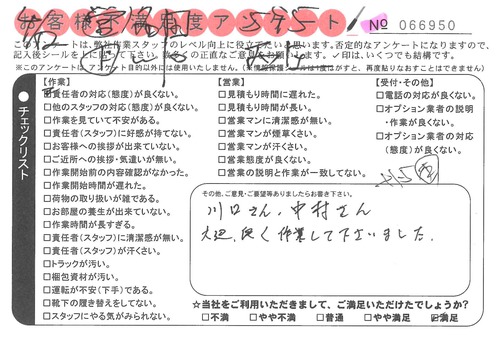 お客様不満足度アンケート
No 066950
このアンケートは、弊社作業スタッフのレベル向上に役立てたいと思います。否定的なアンケートになりますので、
記入後シールを
の正直なご意見をお願いします。✓印は、いくつでも結構です。
※このアンケートは、アンケート目的以外には使用いたしません。(※情報保護シールは1度はがすと、再度貼りなおすことはできません)
チェックリスト
【作業】
□責任者の対応(態度)が良くない。
□他のスタッフの対応(態度)が良くない。
□作業を見ていて不安がある。
□責任者(スタッフ)に好感が持てない。
□お客様への挨拶が出来ていない。
□ご近所への挨拶・気遣いが無い。
□作業開始前の内容確認がなかった。
□作業開始時間が遅れた。
□荷物の取り扱いが雑である。
□お部屋の養生が出来ていない。
□作業時間が長すぎる。
□責任者(スタッフ)に清潔感が無い。
□責任者(スタッフ)が汗くさい。
□トラックが汚い。
□梱包資材が汚い。
□運転が不安(下手)である。
□靴下の履き替えをしてない。
□スタッフにやる気がみられない。
【営業】
□見積もり時間に遅れた。
□見積もり時間が長い。
□営業マンに清潔感が無い。
□営業マンが煙草くさい。
□営業マンが汗くさい。
□営業態度が良くない。
□営業の説明と作業が一致してない。
【受付・その他】
□電話の対応が良くない。
□オプション業者の説明
・作業が良くない。
□オプション業者の対応
(態度)が良くない。
その他、ご意見・ご要望等ありましたらお書き下さい。
川口さん、中村さん
大変、良く作業して下さいました。
☆当社をご利用いただきまして、ご満足いただけたでしょうか?
□不満 □やや不満 □普通 □やや満足 ☑満足